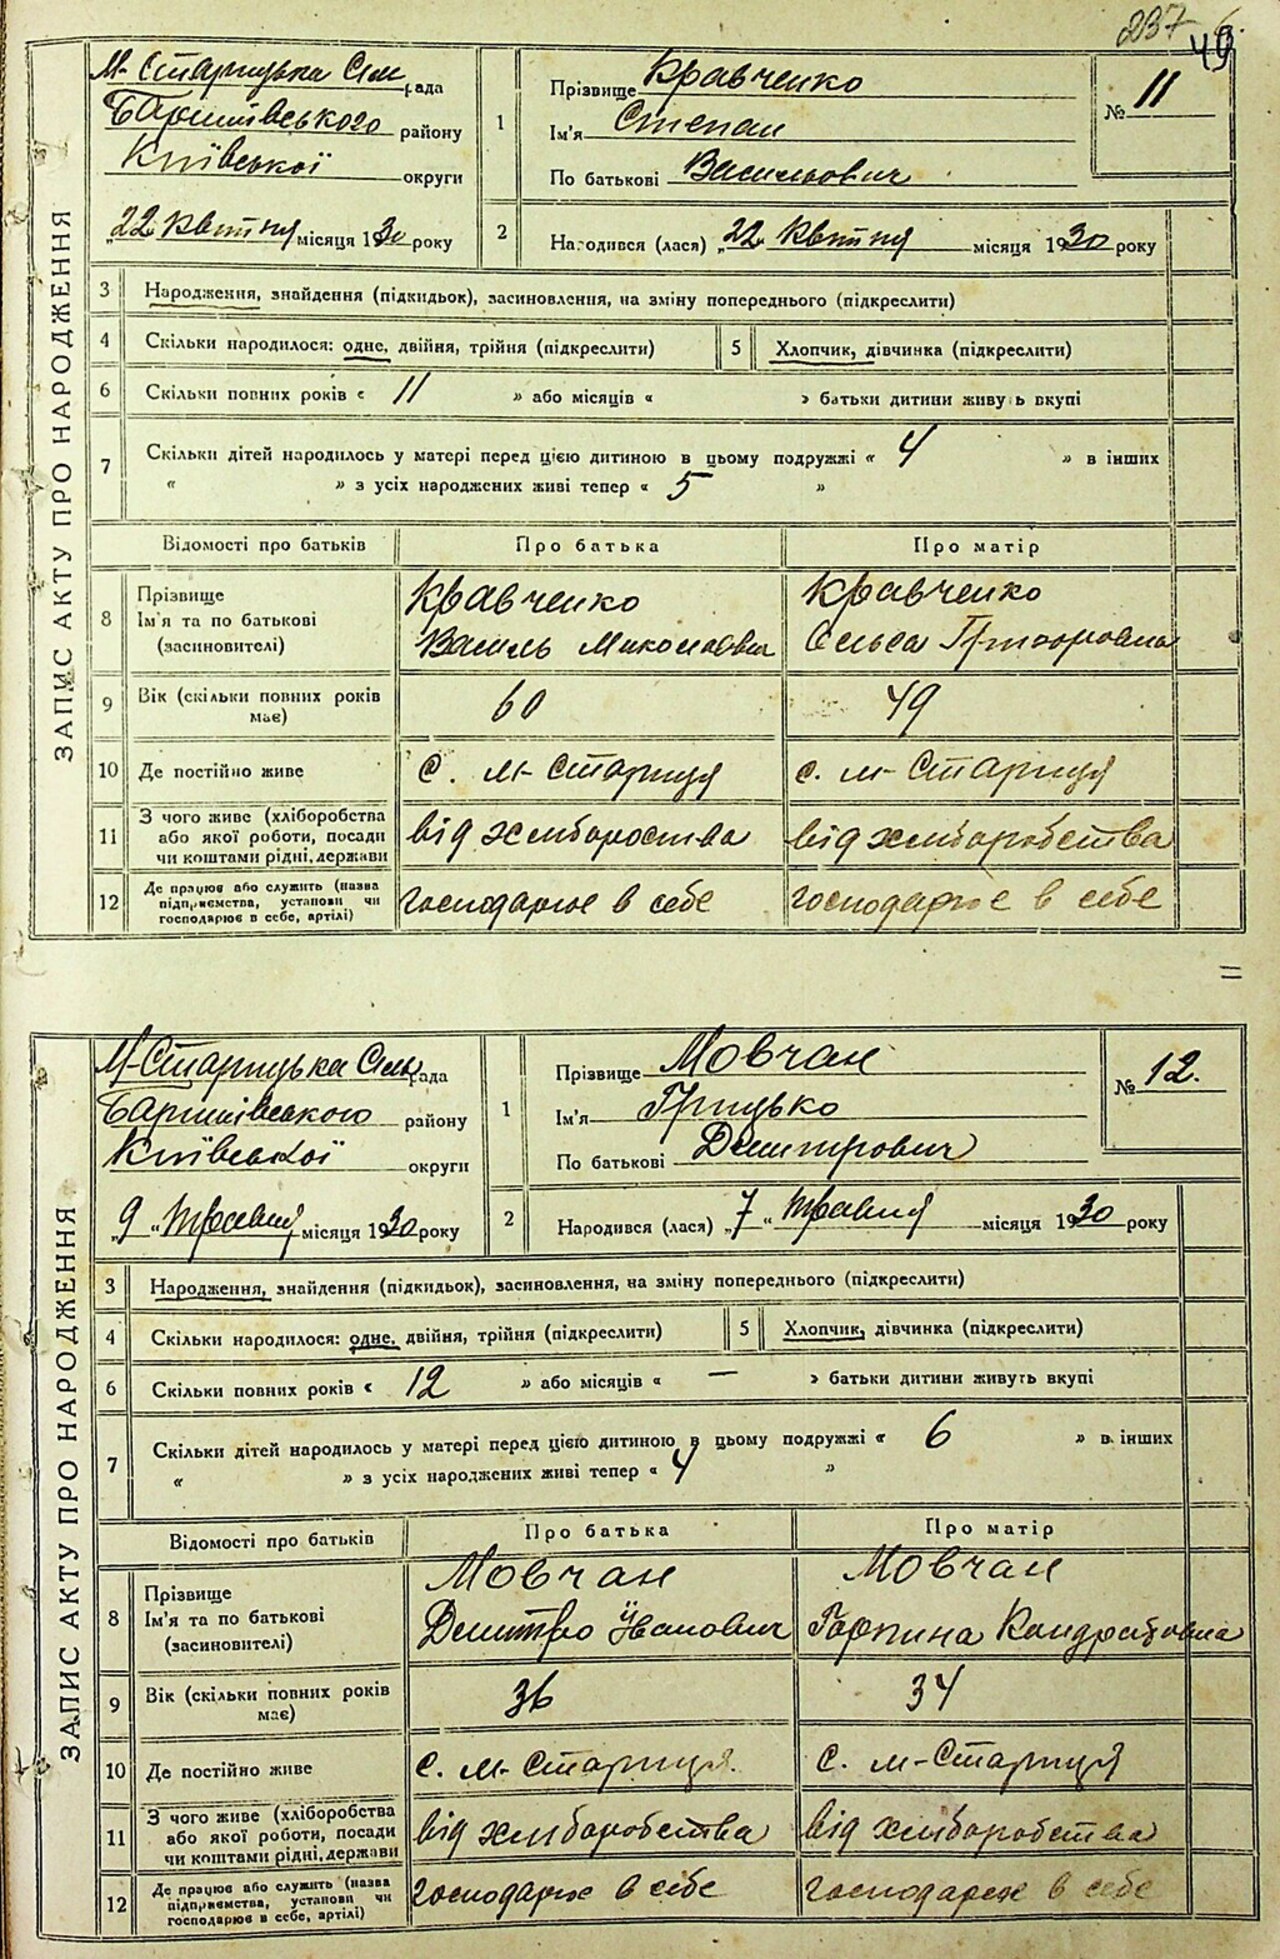 237
49
ЗАПИС АКТУ ПРО НАРОДЖЕННЯ
М-Старицька Сіл рада
Баришівського району
Київської округи
„22 Квітня місяця 1930 року
1
Прізвище Кравченко
Ім'я Степан
По батькові Васильович
№ 11
2
Народився (лася) „22 Квітня місяця 1930 року
3 Народження, знайдення (підкидьок), засиновлення, на зміну попереднього (підкреслити)
4 Скільки народилося: одне, двійня, трійня (підкреслити)
5 Хлопчик, дівчинка (підкреслити)
6 Скільки повних років « 11 » або місяців « » батьки дитини живуть вкупі
7 Скільки дітей народилось у матері перед цією дитиною в цьому подружжі « 4 » в інших
« » з усіх народжених живі тепер « 5 »
Відомості про батьків Про батька Про матір
8 Прізвище Ім'я та по батькові (засиновителі)
Кравченко Василь Миколаєвич
Кравченко Григоровна
9 Вік (скільки повних років має) 60 49
10 Де постійно живе с. М-Стариця с. М-Стариця
11 З чого живе (хліборобства або якої роботи, посади чи коштами рідні, держави
від хлібороства від хліборобства
12 Де працює або служить (назва підприємства, установи чи господарює в себе, артілі)
господарює в себе господарює в себе
=
ЗАПИС АКТУ ПРО НАРОДЖЕННЯ
М-Старицька Сіль рада
Баришівського району
Київської округи
„9„ травня місяця 1930 року
1
Прізвище Мовчан
Ім'я Грицько
По батькові Дмитрович
№ 12.
2
Народився (лася) „7„ травня місяця 1930 року
3 Народження, знайдення (підкидьок), засиновлення, на зміну попереднього (підкреслити)
4 Скільки народилось: одне, двійня, трійня (підкреслити)
5 Хлопчик, дівчинка (підкреслити)
6 Скільки повних років « 12 » або місяців « — » батьки дитини живуть вкупі
7 Скільки дітей народилось у матері перед цією дитиною в цьому подружжі « 6 » в інших
« » з усіх народжених живі тепер « 4 »
Відомості про батьків Про батька Про матір
8 Прізвище Ім'я та по батькові (засиновителі)
Мовчан Дмитро Іванович
Мовчан Горпина Кондратовна
9 Вік (скільки повних років має) 36 34
10 Де постійно живе с. М-Стариця. с. М-Стариця
11 З чого живе (хліборобства або якої роботи, посади чи коштами рідні, держави
від хліборобства від хліборобства
12 Де працює або служить (назва підприємства, установи чи господарює в себе, артілі)
господарює в себе господарює в себе